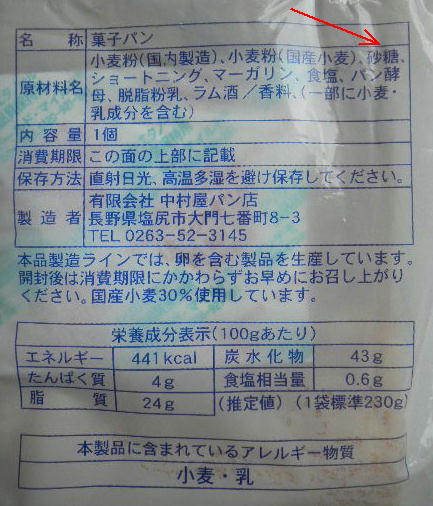 名称 菓子パン
原材料名 小麦粉(国内製造)、小麦粉(国産小麦)、砂糖、
ショートニング、マーガリン、食塩、パン酵
母、脱脂粉乳、ラム酒/香料、(一部に小麦・
乳成分を含む)
内容量 1個
消費期限 この面の上部に記載
保存方法 直射日光、高温多湿を避け保存してください。
製造者 有限会社 中村屋パン店
長野県塩尻市大門七番町8-3
TEL 0263-52-3145
本品製造ラインでは、卵を含む製品を生産しています。
開封後は消費期限にかかわらずお早めにお召し上がり
ください。国産小麦30%使用しています。
栄養成分表示(100gあたり)
エネルギー 441kcal 炭水化物 43g
たんぱく質 4g 食塩相当量 0.6g
脂質 24g (推定値)(1袋標準230g)
本製品に含まれているアレルギー物質
小麦・乳